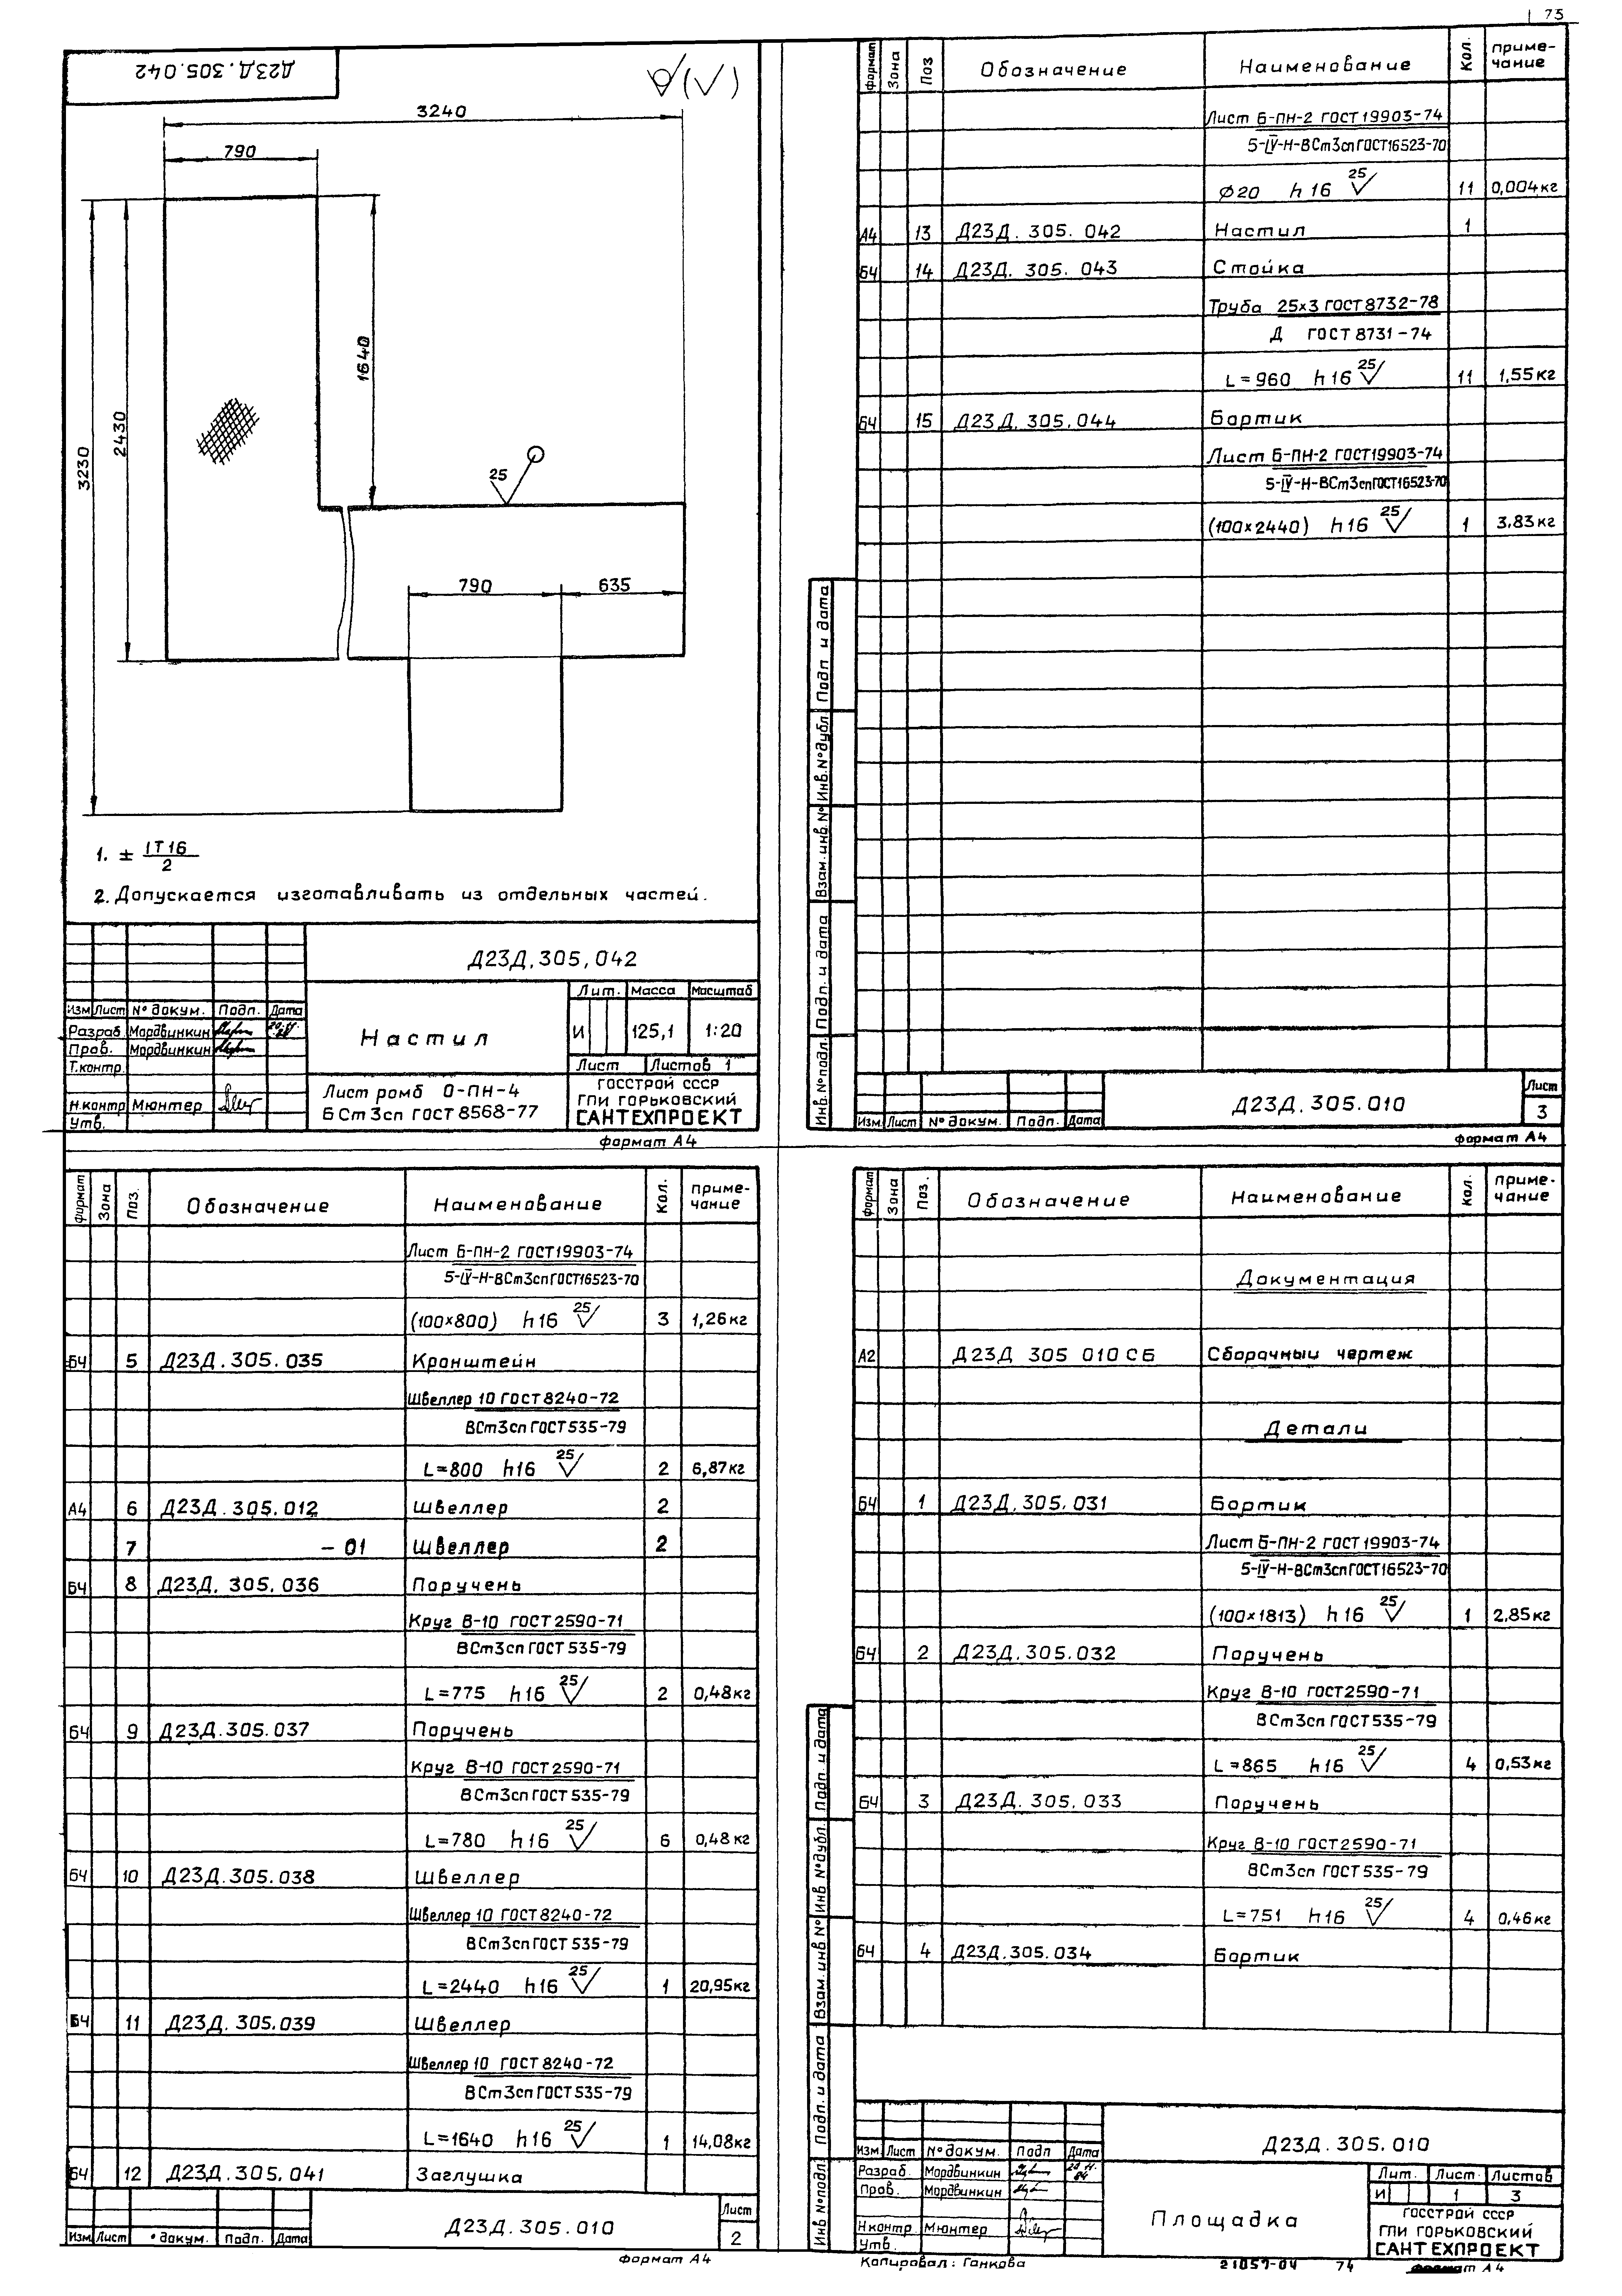 73
Д23Д.305.042
3240
790
3230
2430
1640
25
790
635
1. ± IT16
2
2. Допускается изготавливать из отдельных частей.
Д23Д.305,042
Настил
Лит. Масса Масштаб
И 125,1 1:20
Лист Листов 1
Изм Лист № докум. Подп. Дата
Разраб. Мордвинкин
Пров. Мордвинкин
Т.контр.
Н.контр Мюнтер
Утв.
Лист ромб О-ПН-4
БСт3сп ГОСТ 8568-77
ГОССТРОЙ СССР
ГПИ ГОРЬКОВСКИЙ
САНТЕХПРОЕКТ
формат А4
формат Зона Поз Обозначение Наименование Кол. приме-
чание
Лист Б-ПН-2 ГОСТ19903-74
5-IV-Н-ВСт3сп ГОСТ16523-70
Ø20 h16 25 11 0,004кг
А4 13 Д23Д.305.042 Настил 1
БЧ 14 Д23Д.305.043 Стойка
Труба 25×3 ГОСТ8732-78
Д ГОСТ 8731-74
L=960 h16 25 11 1,55кг
БЧ 15 Д23Д.305.044 Бортик
Лист Б-ПН-2 ГОСТ19903-74
5-IV-Н-ВСт3сп ГОСТ16523-70
(100×2440) h16 25 1 3,83кг
Подп и дата
Инв.№ дубл.
Взам.инв.№
Подп. и дата
Инв.№ подл.
Изм Лист № докум. Подп. Дата
Д23Д.305.010
Лист
3
формат А4
формат Зона Поз. Обозначение Наименование Кол. приме-
чание
Лист Б-ПН-2 ГОСТ19903-74
5-IV-Н-ВСт3сп ГОСТ16523-70
(100×800) h16 25 3 1,26кг
БЧ 5 Д23Д.305.035 Кронштейн
Швеллер 10 ГОСТ8240-72
ВСт3сп ГОСТ535-79
L=800 h16 25 2 6,87кг
А4 6 Д23Д.305.012 Швеллер 2
7 -01 Швеллер 2
БЧ 8 Д23Д.305.036 Поручень
Круг В-10 ГОСТ2590-71
ВСт3сп ГОСТ535-79
L=775 h16 25 2 0,48кг
БЧ 9 Д23Д.305.037 Поручень
Круг В-10 ГОСТ2590-71
ВСт3сп ГОСТ535-79
L=780 h16 25 6 0,48кг
БЧ 10 Д23Д.305.038 Швеллер
Швеллер 10 ГОСТ8240-72
ВСт3сп ГОСТ535-79
L=2440 h16 25 1 20,95кг
БЧ 11 Д23Д.305.039 Швеллер
Швеллер 10 ГОСТ8240-72
ВСт3сп ГОСТ535-79
L=1640 h16 25 1 14,08кг
БЧ 12 Д23Д.305.041 Заглушка
Изм Лист № докум. Подп. Дата
Д23Д.305.010
Лист
2
формат А4
формат Зона Поз. Обозначение Наименование кол. приме-
чание
Документация
А2 Д23Д 305 010 СБ Сборочный чертеж
Детали
БЧ 1 Д23Д.305.031 Бортик
Лист Б-ПН-2 ГОСТ19903-74
5-IV-Н-ВСт3сп ГОСТ16523-70
(100×1813) h16 25 1 2,85кг
БЧ 2 Д23Д.305.032 Поручень
Круг В-10 ГОСТ2590-71
ВСт3сп ГОСТ535-79
L=865 h16 25 4 0,53кг
БЧ 3 Д23Д.305.033 Поручень
Круг В-10 ГОСТ2590-71
ВСт3сп ГОСТ535-79
L=751 h16 25 4 0,46кг
БЧ 4 Д23Д.305.034 Бортик
Подп. и дата
Инв №дубл.
Взам.инв №
Подп. и дата
Инв №подл.
Изм. Лист № докум. Подп Дата
Разраб. Мордвинкин
Пров. Мордвинкин
Н.контр Мюнтер
Утв.
Д23Д.305.010
Площадка
Лит. Лист Листов
И 1 3
ГОССТРОЙ СССР
ГПИ ГОРЬКОВСКИЙ
САНТЕХПРОЕКТ
Копировал: Ганкова 21057-04 74 формат А4